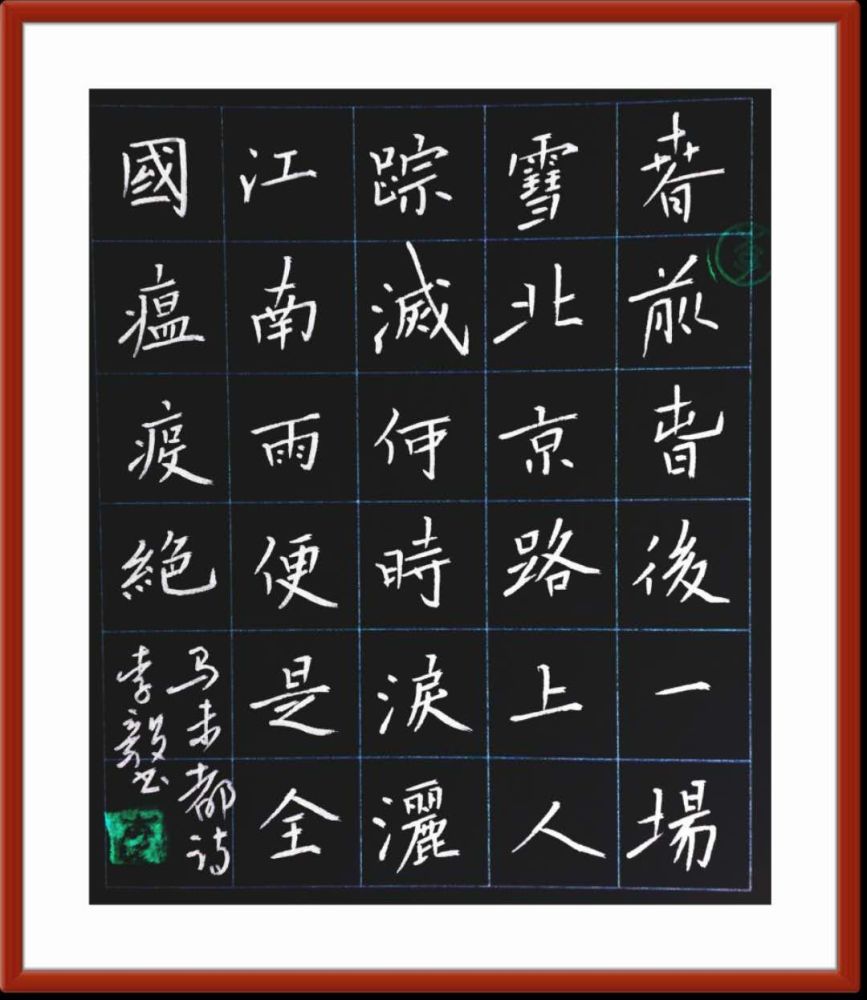 春前旾後一場
雪北京路上人
踪滅何時淚灑
江南雨便是全
國瘟疫絕
马未都诗
李毅书